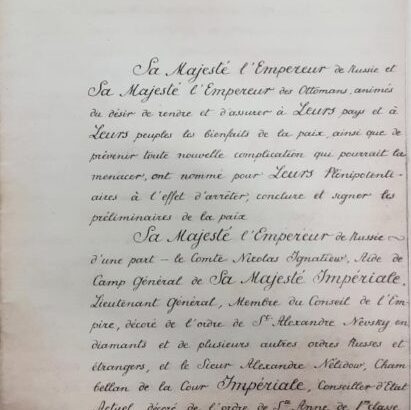 Sa Majesté l'Empereur de Russie et
Sa Majesté l'Empereur des Ottomans, animés
du désir de rendre et d'assurer à Leurs pays et à
Leurs peuples les bienfaits de la paix, ainsi que de
prévenir toute nouvelle complication qui pourrait la
menacer, ont nommé pour Leurs Plénipotenti-
aires à l'effet d'arrêter, conclure et signer les
préliminaires de la paix
Sa Majesté l'Empereur de Russie
d'une part - le Comte Nicolas Ignatiew, Aide de
Camp Général de Sa Majesté Impériale,
Lieutenant Général, Membre du Conseil de l'Em-
pire, décoré de l'ordre de St Alexandre Nevsky en
diamants et de plusieurs autres ordres Russes et
étrangers, et le Sieur Alexandre Nélidow, Cham-
bellan de la Cour Impériale, Conseiller d'Etat
Actuel, décoré de l'ordre de Ste Anne de 1re classe